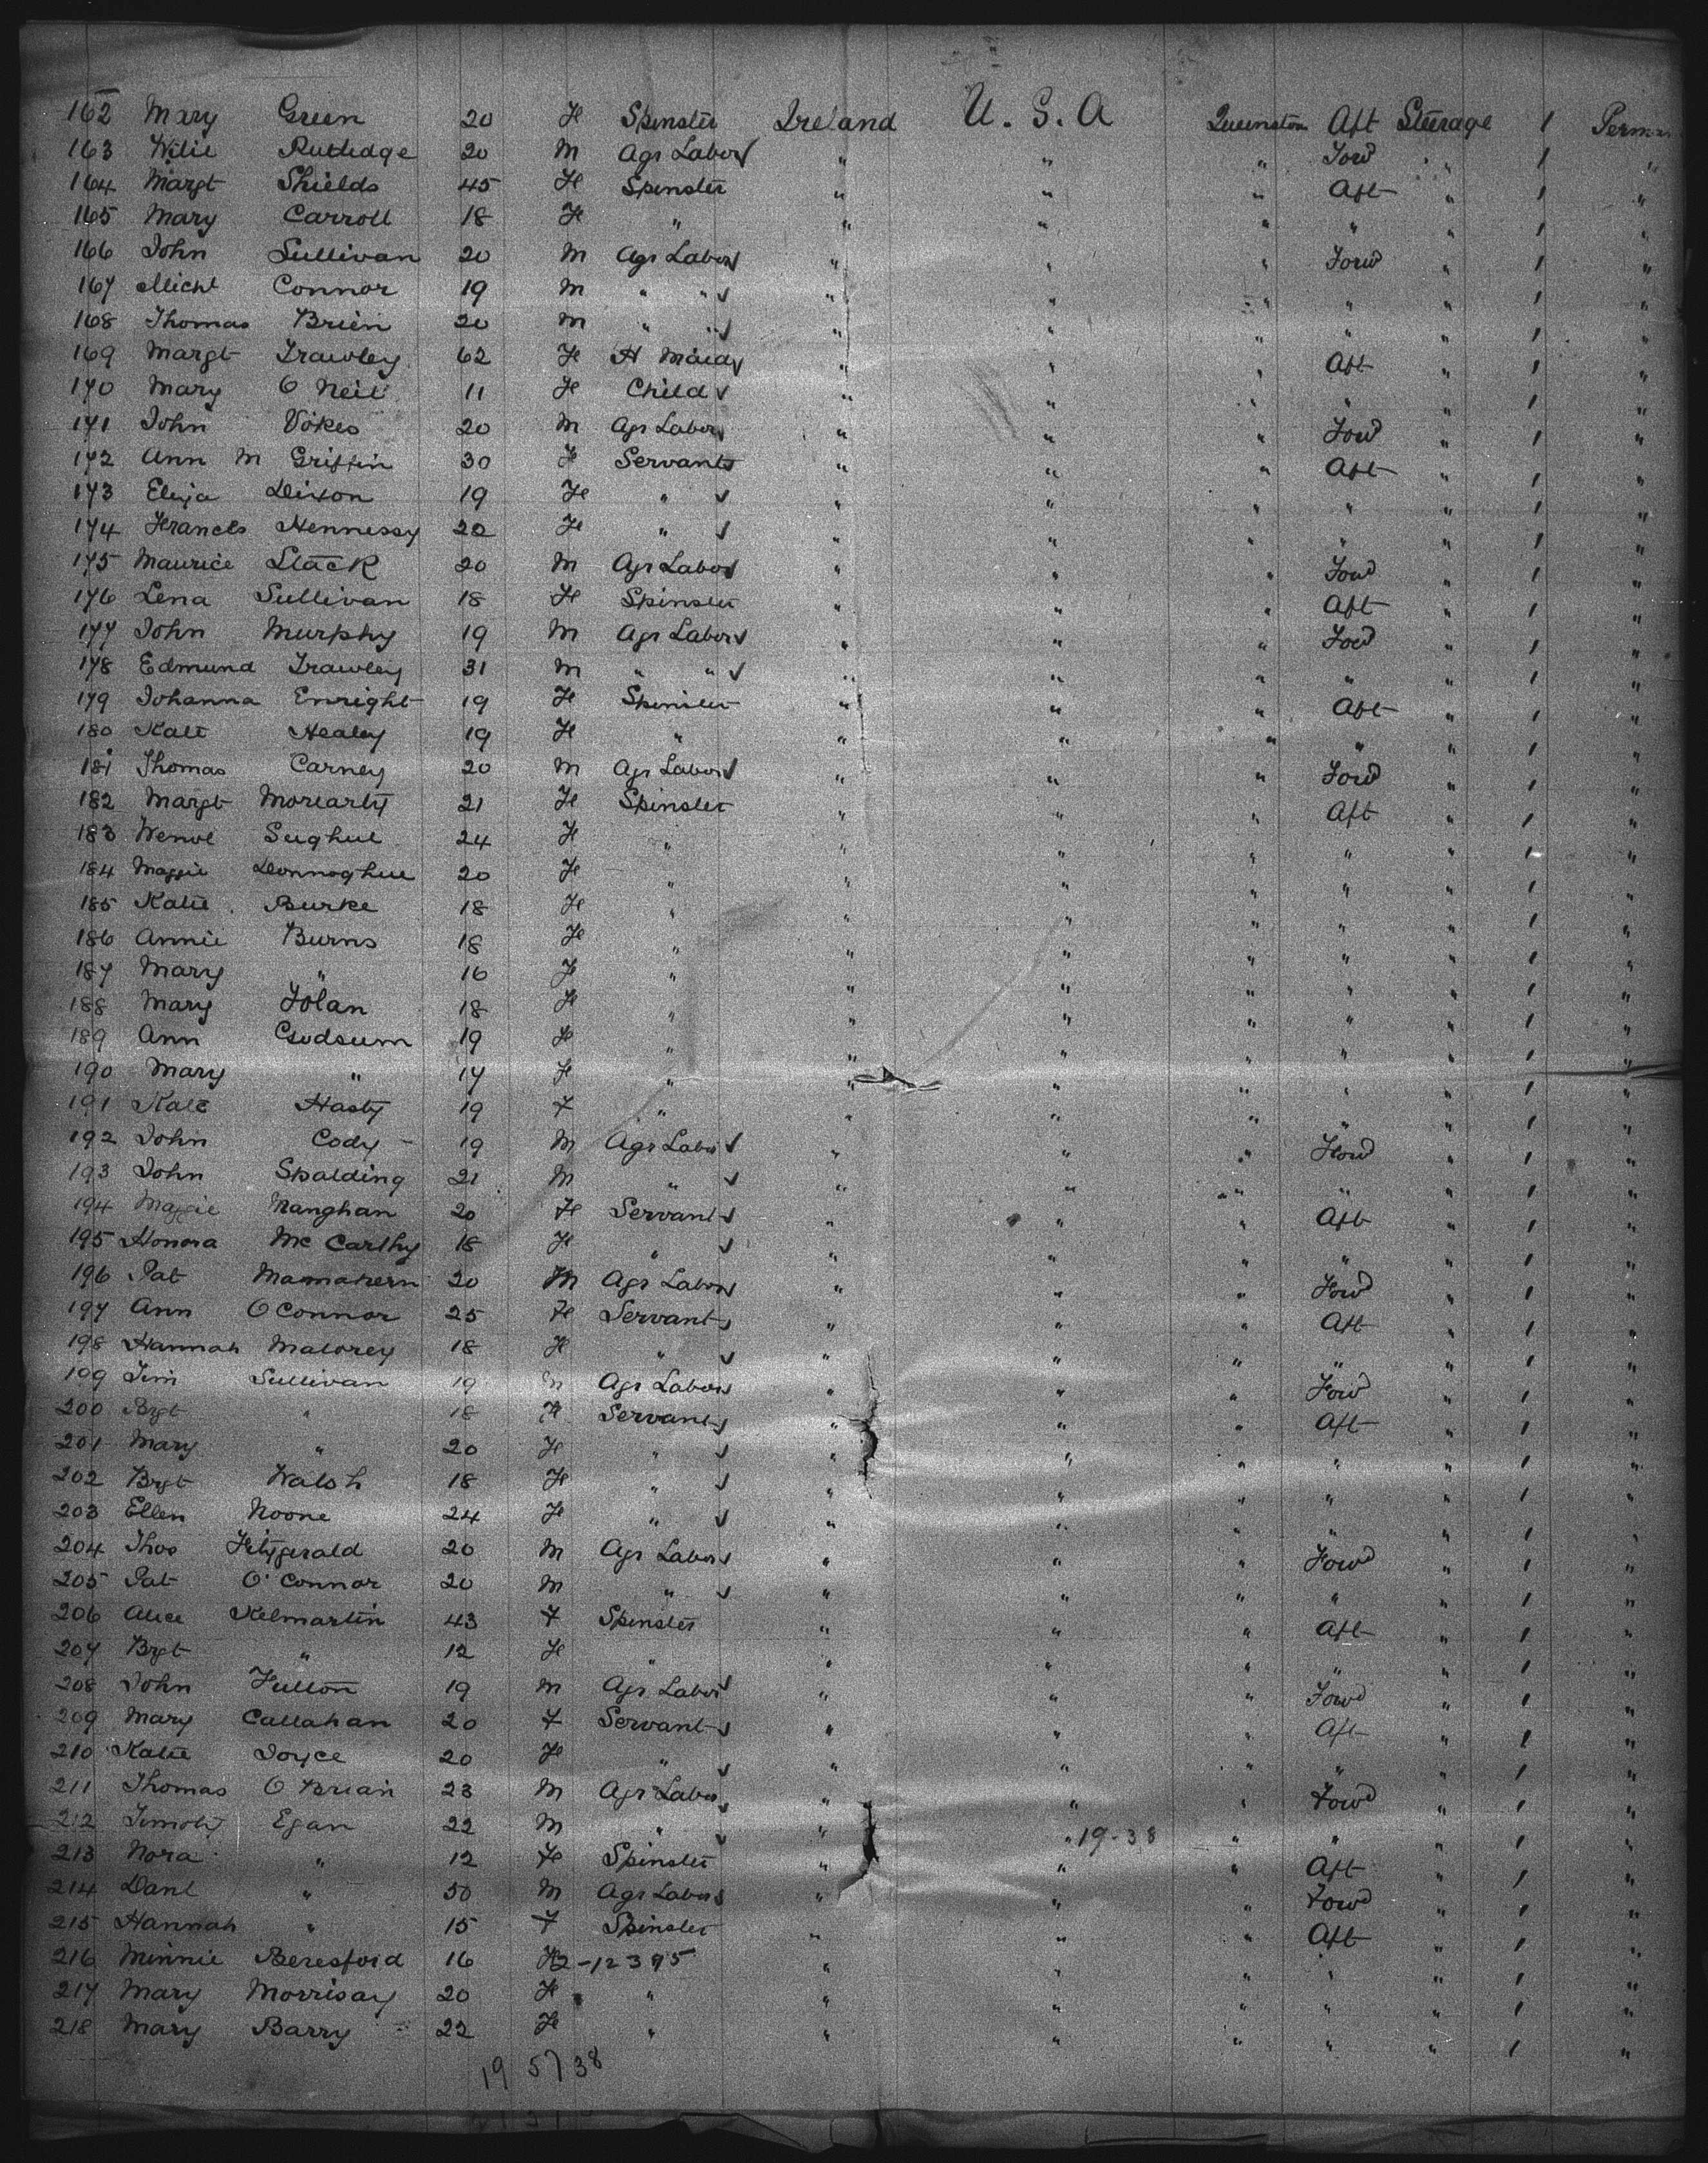 162 Mary Green 20 F Spinster Ireland U. S. A Queenston Aft Steerage 1 Perman
163 Wilie Rutledge 20 M Agr Labor " " " Forw " 1 "
164 Margt Shields 45 F Spinster " " " Aft " 1 "
165 Mary Carroll 18 F " " " " " " 1 "
166 John Sullivan 20 M Agr Labor " " " Forw " 1 "
167 Michl Connor 19 M " " " " " " " 1 "
168 Thomas Brien 20 M " " " " " " " 1 "
169 Margt Frawley 62 F H Maid " " " Aft " 1 "
170 Mary O Neil 11 F Child " " " " " 1 "
171 John Vokes 20 M Agr Labor " " " Forwd " 1 "
172 Ann M Griffin 30 F Servant " " " Aft " 1 "
173 Eliza Dixon 19 F " " " " " " 1 "
174 Francis Hennessy 22 F " " " " " " 1 "
175 Maurice Stack 20 M Agr Labor " " " Forwd " 1 "
176 Lena Sullivan 18 F Spinster " " " Aft " 1 "
177 John Murphy 19 M Agr Labor " " " Forwd " 1 "
178 Edmund Frawley 31 M " " " " " " " 1 "
179 Johanna Enright 19 F Spinster " " " Aft " 1 "
180 Kate Healey 19 F " " " " " " 1 "
181 Thomas Carney 20 M Agr Labor " " " Forwd " 1 "
182 Margt Moriarty 21 F Spinster " " " Aft " 1 "
183 Sughue 24 F " " " " " " 1 "
184 Maggie Donnoghue 20 F " " " " " " 1 "
185 Katie Burke 18 F " " " " " " 1 "
186 Annie Burns 18 F " " " " " " 1 "
187 Mary " 16 F " " " " " " 1 "
188 Mary Folan 18 F " " " " " " 1 "
189 Ann Godsum 19 F " " " " " " 1 "
190 Mary " 17 F " " " " " " 1 "
191 Kate Hasty 19 F " " " " " " 1 "
192 John Cody 19 M Agr Labor " " " Forwd " 1 "
193 John Spalding 21 M " " " " " " 1 "
194 Maggie Manghan 20 F Servant " " " Aft " 1 "
195 Honora Mc Carthy 18 F " " " " " " 1 "
196 Pat Mamahern 20 M Agr Labor " " " Forwd " 1 "
197 Ann O Connor 25 F Servant " " " Aft " 1 "
198 Hannah Maloney 18 F " " " " " " 1 "
199 Jim Sullivan 19 M Agr Labor " " " Forwd " 1 "
200 Brgt " 18 F Servant " " " Aft " 1 "
201 Mary " 20 F " " " " " " 1 "
202 Brgt Walsh 18 F " " " " " " 1 "
203 Ellen Noone 24 F " " " " " " 1 "
204 Thos Fitzgerald 20 M Agr Labor " " " Forwd " 1 "
205 Pat O'Connor 20 M " " " " " " 1 "
206 Alice Kelmartin 43 F Spinster " " " Aft " 1 "
207 Brgt " 12 F " " " " " " 1 "
208 John Fulton 19 M Agr Labor " " " Forwd " 1 "
209 Mary Callahan 20 F Servant " " " Aft " 1 "
210 Katie Joyce 20 F " " " " " " 1 "
211 Thomas O Brian 23 M Agr Labor " " " Forwd " 1 "
212 Timoty Egan 22 M " " " 19-38 " " " 1 "
213 Nora " 12 F Spinster " " " Aft " 1 "
214 Danl " 50 M Agr Labor " " " Forwd " 1 "
215 Hannah " 15 F Spinster " " " Aft " 1 "
216 Minnie Beresford 16 F 2-12375 " " " " " 1 "
217 Mary Morrisay 20 F " " " " " " 1 "
218 Mary Barry 22 F " " " " " " 1 "
19 5738